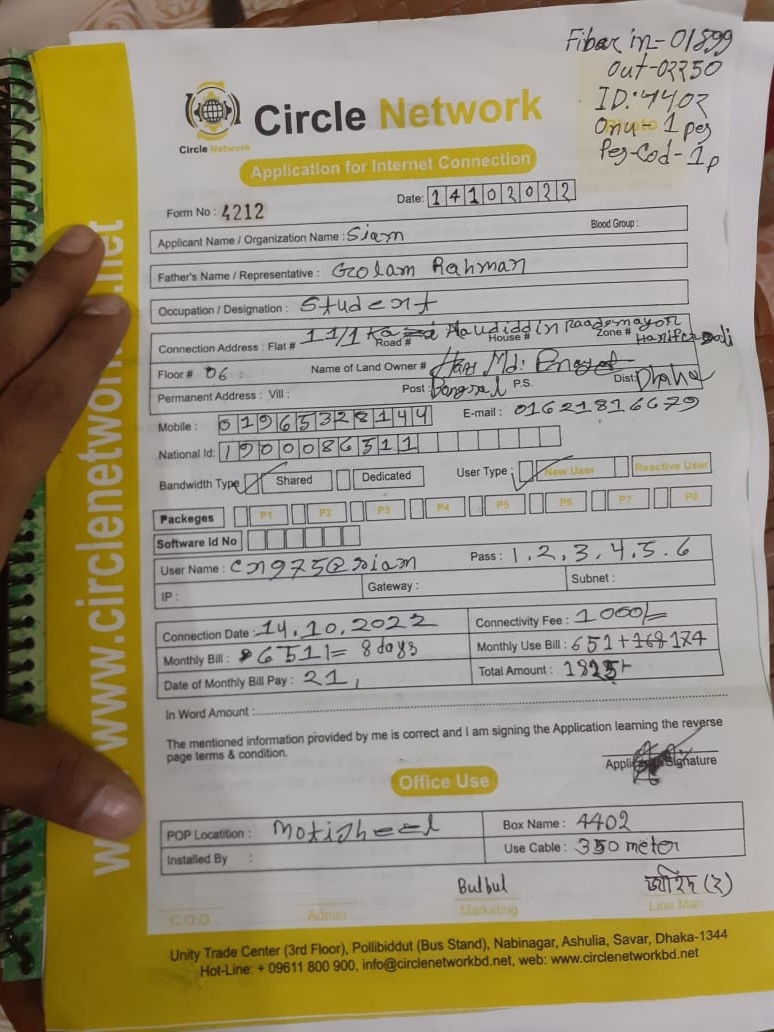 Fibar in-01899
out-02250
ID:4402
Onu-1 pes
Pes-Cod-1p
Circle Network
Circle Network
Application for Internet Connection
Form No : 4212
Date: 14102022
Applicant Name / Organization Name : Siam
Blood Group :
Father's Name / Representative : Golam Rahman
Occupation / Designation : Student
Connection Address : Flat # 11/1 Road # House # Zone #
Floor # 06 Name of Land Owner # Md:
Permanent Address : Vill : Post : P.S. Dist: Dhaka
Mobile : 01965328144 E-mail : 01621816679
National Id: 1900086311
Bandwidth Type Shared Dedicated User Type : New User Reactive User
Packeges P1 P2 P3 P4 P5 P6 P7 P8
Software Id No
User Name : cn975@siam Pass : 1,2,3,4.5.6
IP : Gateway : Subnet :
Connection Date : 14.10.2022 Connectivity Fee : 1000/=
Monthly Bill : 651/= 8 days Monthly Use Bill : 651+174
Date of Monthly Bill Pay : 21, Total Amount : 1825/-
In Word Amount :
The mentioned information provided by me is correct and I am signing the Application learning the reverse
page terms & condition.
Signature
Office Use
POP Locatition : Motijheel Box Name : 4402
Installed By : Use Cable : 350 meter
Bulbul
C.O.O Admin Marketing Line Man
Unity Trade Center (3rd Floor), Pollibiddut (Bus Stand), Nabinagar, Ashulia, Savar, Dhaka-1344
Hot-Line: + 09611 800 900, info@circlenetworkbd.net, web: www.circlenetworkbd.net
www.circlenetwor